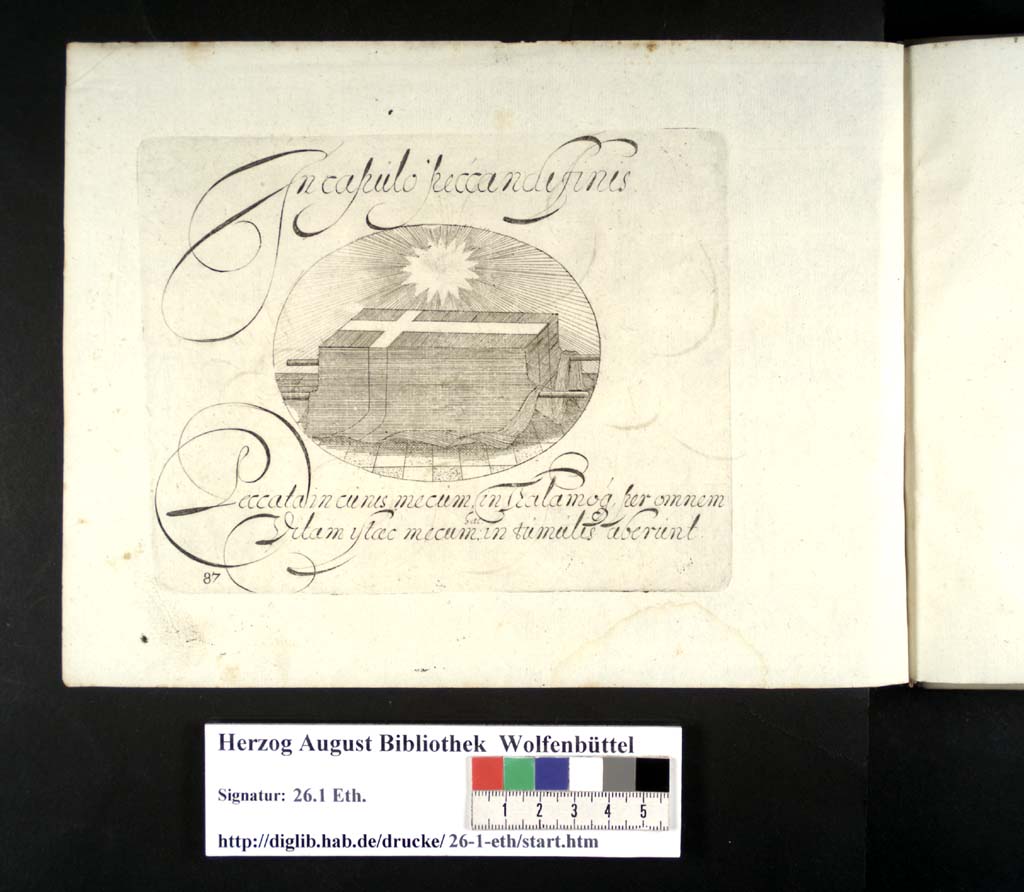 In capulo peccandi finis
Peccata in cunis mecum, in Thalamoq́ per omnem
Vitam istaec mecum, in tumulis aberunt.
87
Herzog August Bibliothek Wolfenbüttel
Signatur: 26.1 Eth.
1 2 3 4 5
http://diglib.hab.de/drucke/ 26-1-eth/start.htm